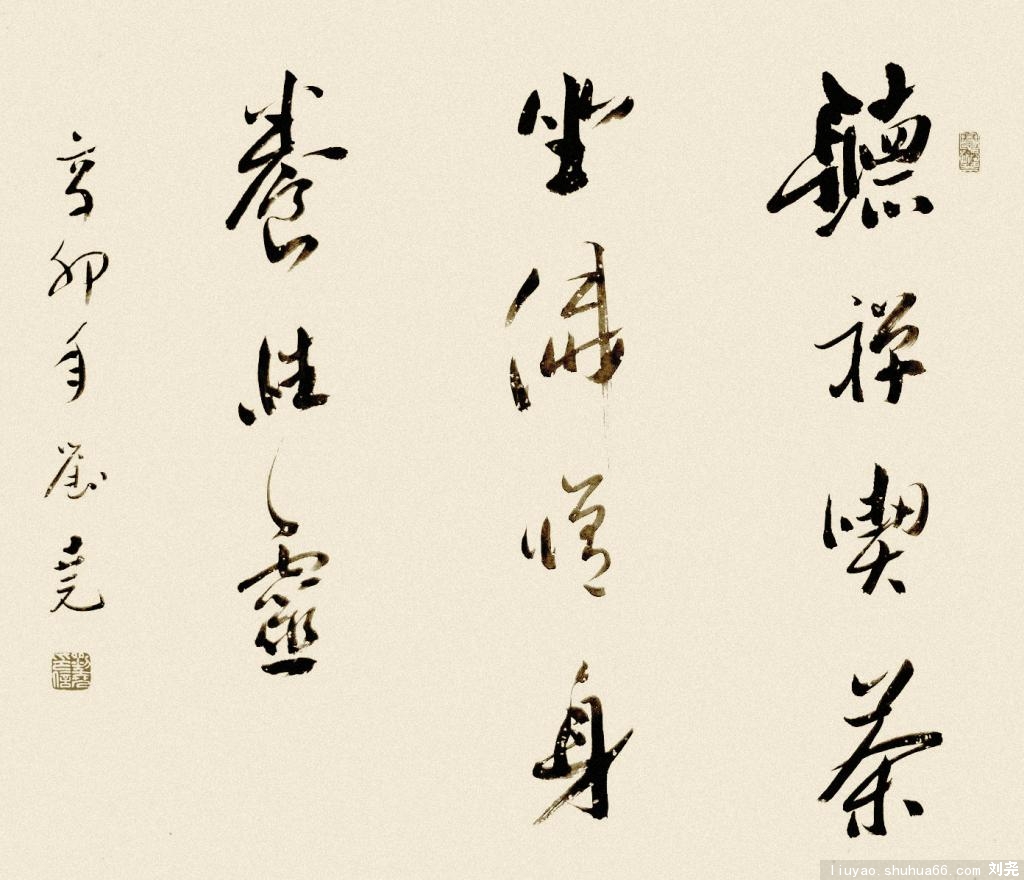 聽禪喫茶
坐佛修身
養性靈
辛卯年劉堯
liuyao.shuhua66.com 刘尧